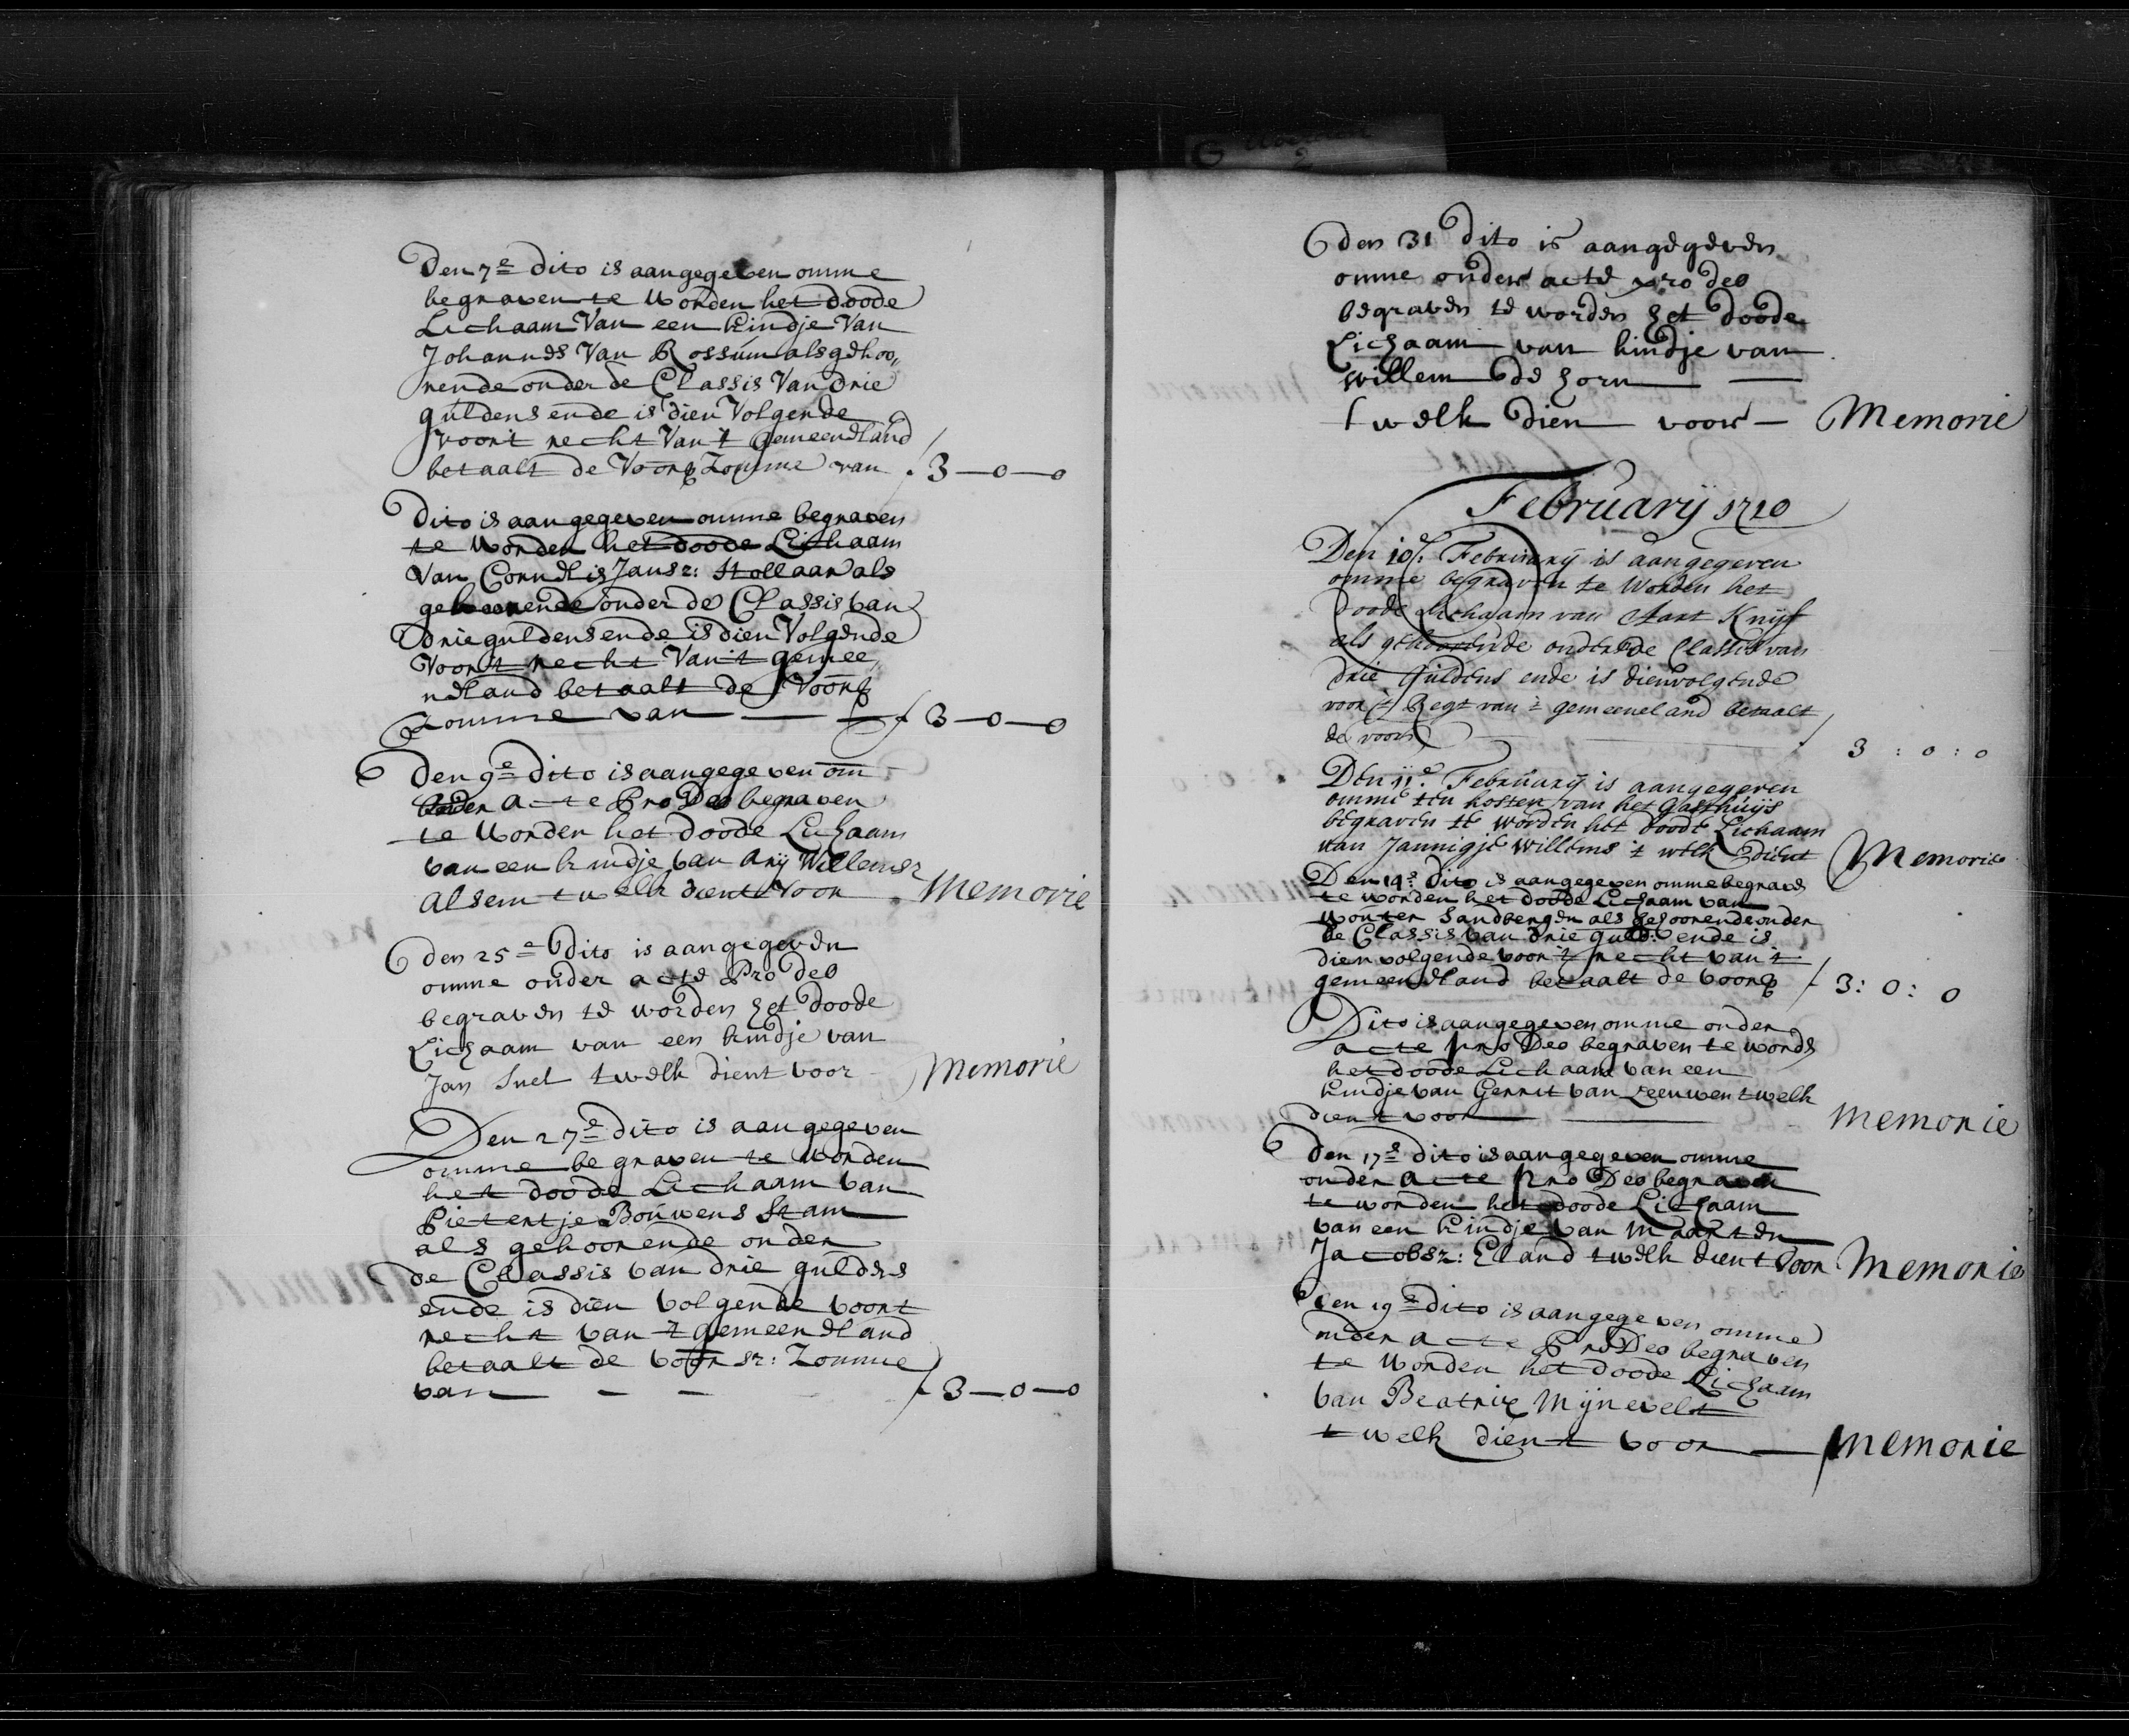 Den 7e dito is aangegeven omme
begraven te worden het doode
Lichaam Van een kindje Van
Johannes Van Rossúm als gehoo„
rende onder de Classis Van drie
gúldens ende is dien Volgende
voor't recht Van 't gemeeneland
betaalt de Voors Zomme van f 3—0—0
Dito is aangegeven omme begraven
te worden het doode Lichaam
Van Cornelis Jansz: Stollaar als
gehoorende onder de Classis van
drie guldens ende is dien Volgende
Voor't recht Van 't gemee„
neland betaalt de Voors
Zomme van — — f 3—0—0
Den 9e dito is aangegeven om
onder acte Pro Deo begraven
te worden het doode Lichaam
van een kindje van Arij Willemsz
Alsem twelk dient Voor Memorie
Den 25e dito is aangegeven
omme onder acte Pro deo
begraven te worden het doode
Lichaam van een kindje van
Jan Snel twelk dient voor Memorie
Den 27e dito is aangegeven
omme begraven te worden
het doode Lichaam van
Pietertje Boúwens Stam
als gehoorende onder
de Classis van drie gúldens
ende is dien volgende voor t
recht van 't gemeeneland
betaalt de voorsz: Zomme
van — — — f 3—0—0
den 31 dito is aangegeven
omme onder acte pro deo
begraven te worden het doode
Lichaam van kindje van
Willem de horn —
twelk dien voor — Memorie
Februarij 1710
Den 10e. Februarij is aangegeven
omme begraven te worden het
doode Lichaam van Aart Knijf
als gehoorende onder de Classis van
drie Guldens ende is dienvolgende
voor 't Regt van 't gemeeneland betaalt
de voors f 3 : 0 : 0
Den 11e. Februarij is aangegeven
omme ten kosten van het Gasthuijs
begraven te worden het doode Lichaam
van Jannigje Willems 't welk dient Memorie
Den 14e: dito is aangegeven omme begrave
te worden het doode Lichaam van
Wouter Sandbergen als gehoorende onder
de Classis van drie guld: ende is
dien volgende voor 't recht van 't
gemeeneland betaalt de voors f 3: 0: 0
Dito is aangegeven omme onder
acte pro Deo begraven te worde
het doode Lichaam van een
kindje van Gerrit van Leeuwen twelk
dient voor — memorie
Den 17e dito is aangegeven omme
onder acte pro Deo begraven
te worden het doode Lichaam
van een kindje van Maarten
Jacobsz: Eland twelk dient Voor Memorie
Den 19e dito is aangegeven omme
onder acte Pro Deo begraven
te worden het doode Lichaam
van Beatrix Mijnevelt
twelk dient voor — memorie